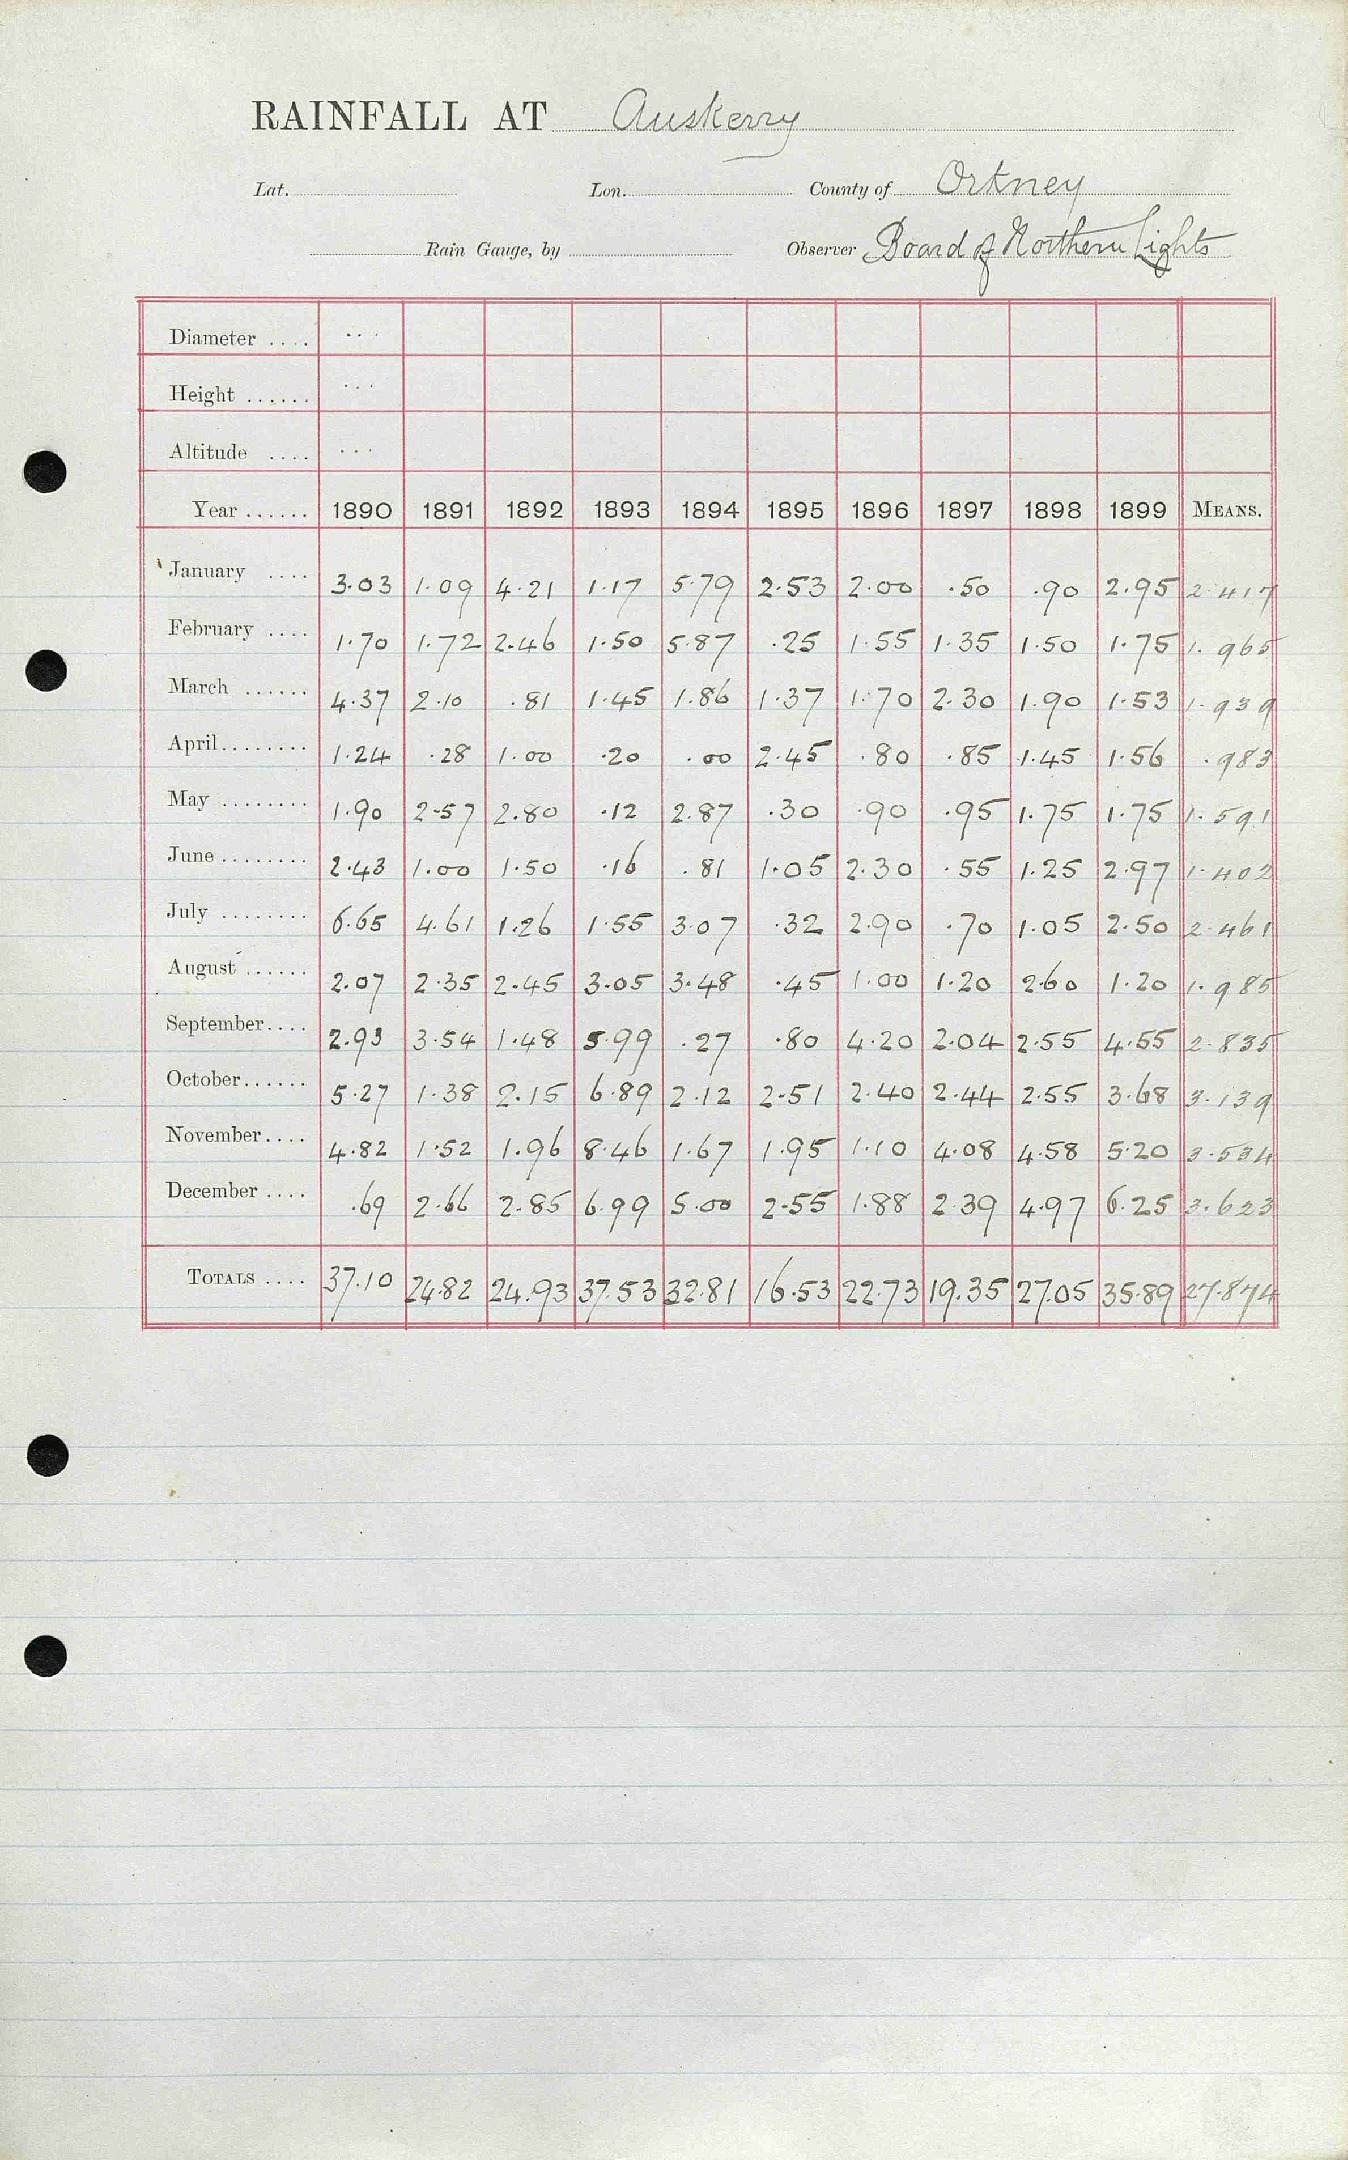 RAINFALL AT Auskerry
Lat. Lon. County of Orkney
Rain Gauge, by Observer Board of Northern Lights
Diameter .... ...
Height ...... ...
Altitude .... ...
Year ...... 1890 1891 1892 1893 1894 1895 1896 1897 1898 1899 MEANS.
January .... 3.03 1.09 4.21 1.17 5.79 2.53 2.00 .50 .90 2.95 2.417
February .... 1.70 1.72 2.46 1.50 5.87 .25 1.55 1.35 1.50 1.75 1.965
March ...... 4.37 2.10 .81 1.45 1.86 1.37 1.70 2.30 1.90 1.53 1.939
April........ 1.24 .28 1.00 .20 .00 2.45 .80 .85 1.45 1.56 .983
May ........ 1.90 2.57 2.80 .12 2.87 .30 .90 .95 1.75 1.75 1.591
June ........ 2.43 1.00 1.50 .16 .81 1.05 2.30 .55 1.25 2.97 1.402
July ........ 6.65 4.61 1.26 1.55 3.07 .32 2.90 .70 1.05 2.50 2.461
August ...... 2.07 2.35 2.45 3.05 3.48 .45 1.00 1.20 2.60 1.20 1.985
September.... 2.93 3.54 1.48 5.99 .27 .80 4.20 2.04 2.55 4.55 2.835
October...... 5.27 1.38 2.15 6.89 2.12 2.51 2.40 2.44 2.55 3.68 3.139
November.... 4.82 1.52 1.96 8.46 1.67 1.95 1.10 4.08 4.58 5.20 3.534
December .... .69 2.66 2.85 6.99 5.00 2.55 1.88 2.39 4.97 6.25 3.623
TOTALS .... 37.10 24.82 24.93 37.53 32.81 16.53 22.73 19.35 27.05 35.89 27.874